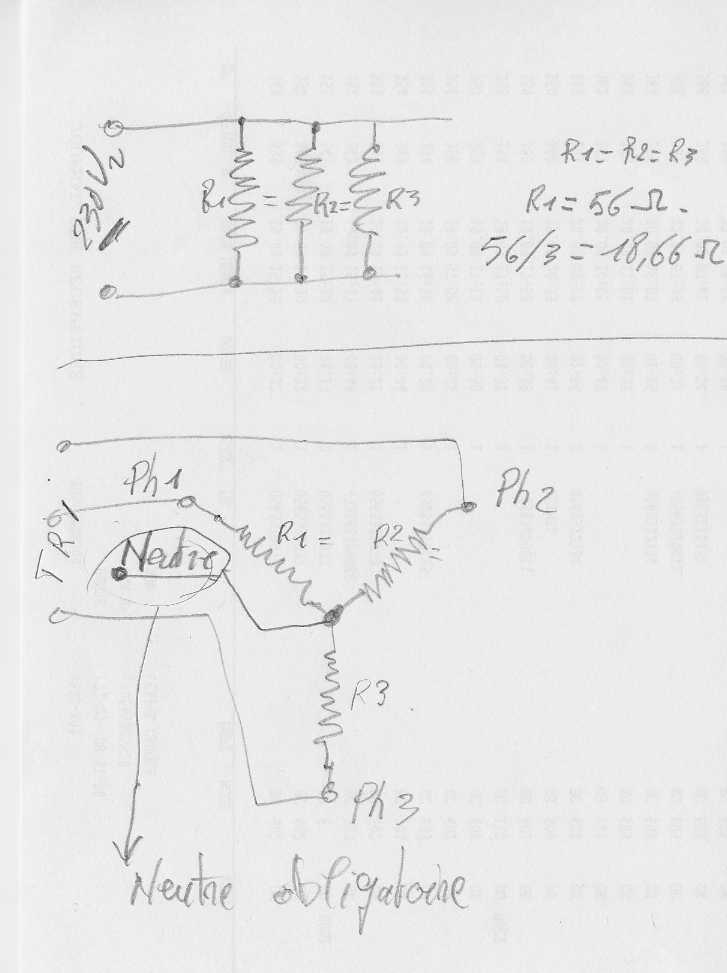 R1 = R2 = R3
230V~
R1 = R2 = R3
R1 = 56 Ω.
56/3 = 18,66 Ω
Ph1
Ph2
R1 =
R2 =
Neutre
R3
Ph3
Neutre obligatoire